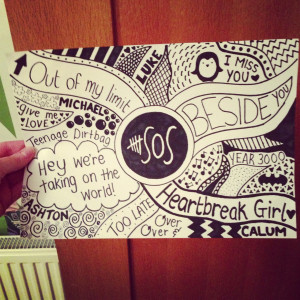 Out of my limit
LUKE
I MISS
YOU
MICHAEL
give me
LOVE
BESIDE
YOU
Teenage Dirtbag
SOS
YEAR 3000
Hey we're
taking on the
world!
Heartbreak Girl
ASHTON
TOO LATE
Over
Over &
CALUM